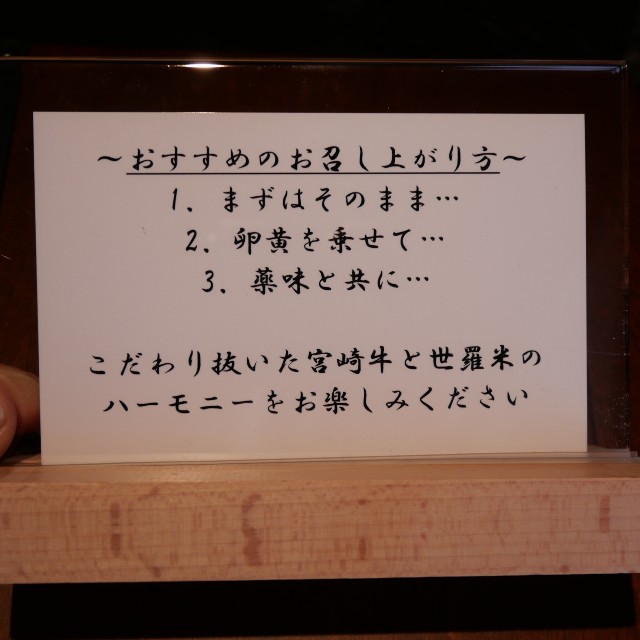 ～おすすめのお召し上がり方～
1. まずはそのまま…
2. 卵黄を乗せて…
3. 薬味と共に…
こだわり抜いた宮崎牛と世羅米の
ハーモニーをお楽しみください